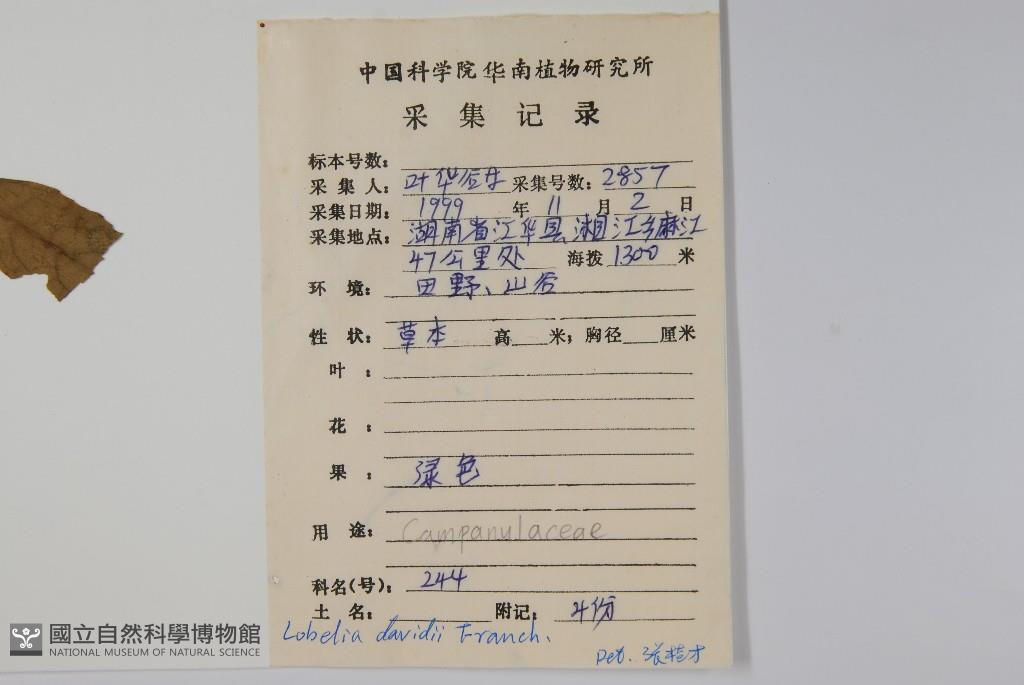 中国科学院华南植物研究所
采集记录
标本号数:
采集人: 叶华谷 采集号数: 2857
采集日期: 1999 年 11 月 2 日
采集地点: 湖南省江华县湘江乡麻江
47公里处 海拨 1300 米
环境: 田野、山谷
性状: 草本 高 米; 胸径 厘米
叶:
花:
果: 绿色
用途: Campanulaceae
科名(号): 244
土名: 附记: 4份
Lobelia davidii Franch.
Det. 张桂才
國立自然科學博物館
NATIONAL MUSEUM OF NATURAL SCIENCE